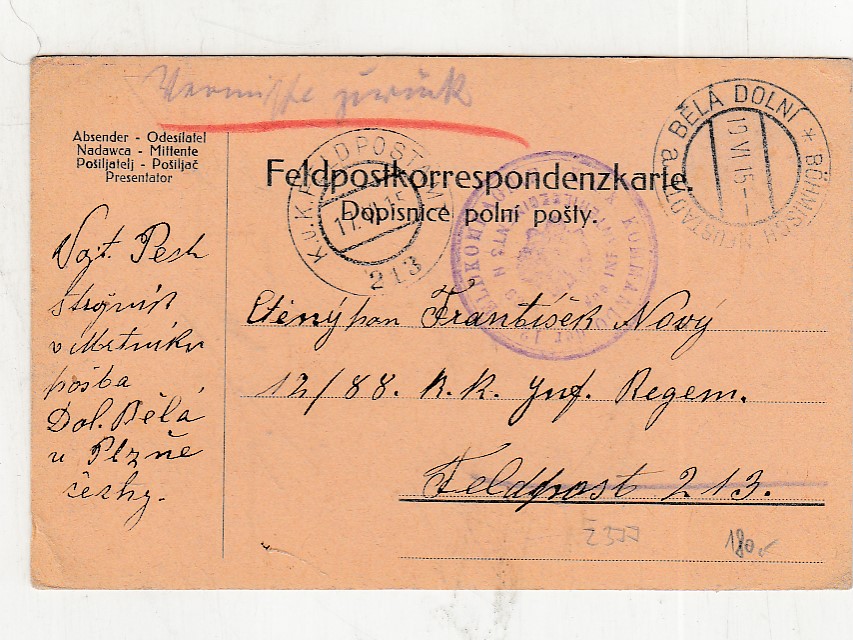 Vermißt zurück
Absender - Odesílatel
Nadawca - Mittente
Pošiljatelj - Pošiljač
Presentator
Feldpostkorrespondenzkarte.
Dopisnice polní pošty.
BĚLÁ DOLNÍ * BÖHMISCH NEUSTADTL a
19 VI 15
K.u.K. FELDPOSTAMT
213
Vojt. Pech
strojník
v Mrtníku
pošta
Dol. Bělá
u Plzně
čechy.
Ctěný pan František Nový
12/88. K. K. Inf. Regem.
Feldpost 213.
180.-